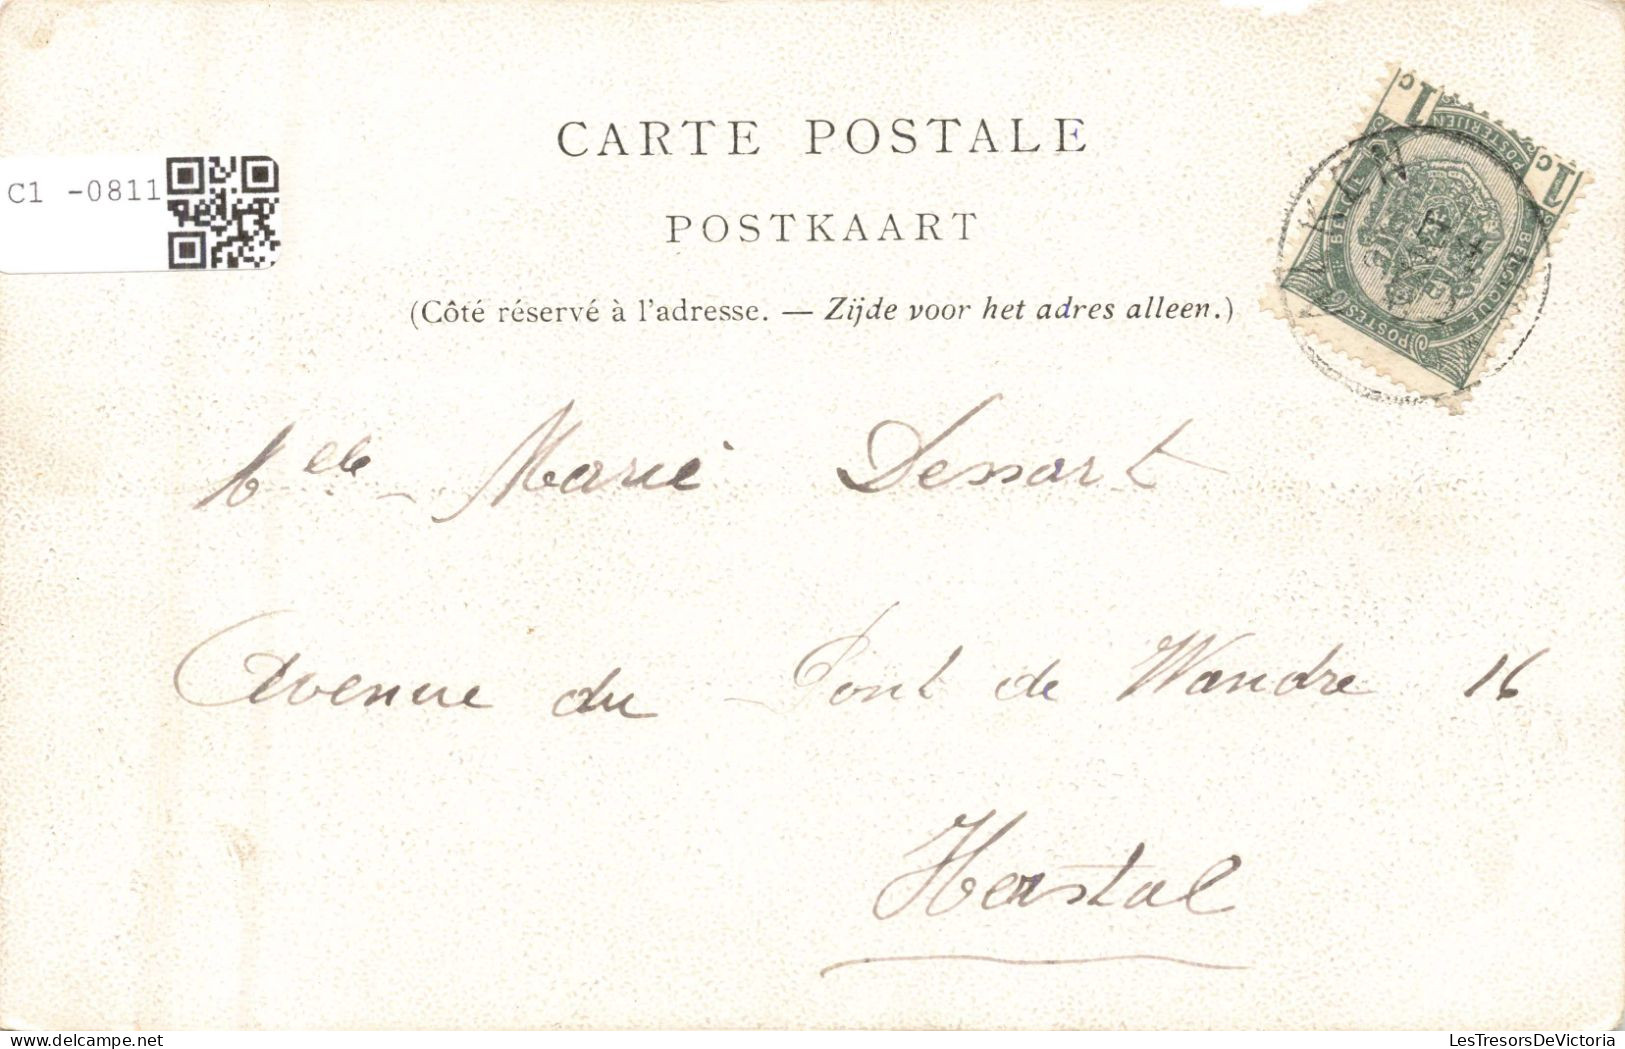 CARTE POSTALE
POSTKAART
(Côté réservé à l'adresse. — Zijde voor het adres alleen.)
C1 -0811
1c
1c
POSTERIJEN
BELGIQUE
POSTES
Mlle Marie Dessart
Avenue du Pont de Wandre 16
Herstal
LesTresorsDeVictoria
delcampe.net